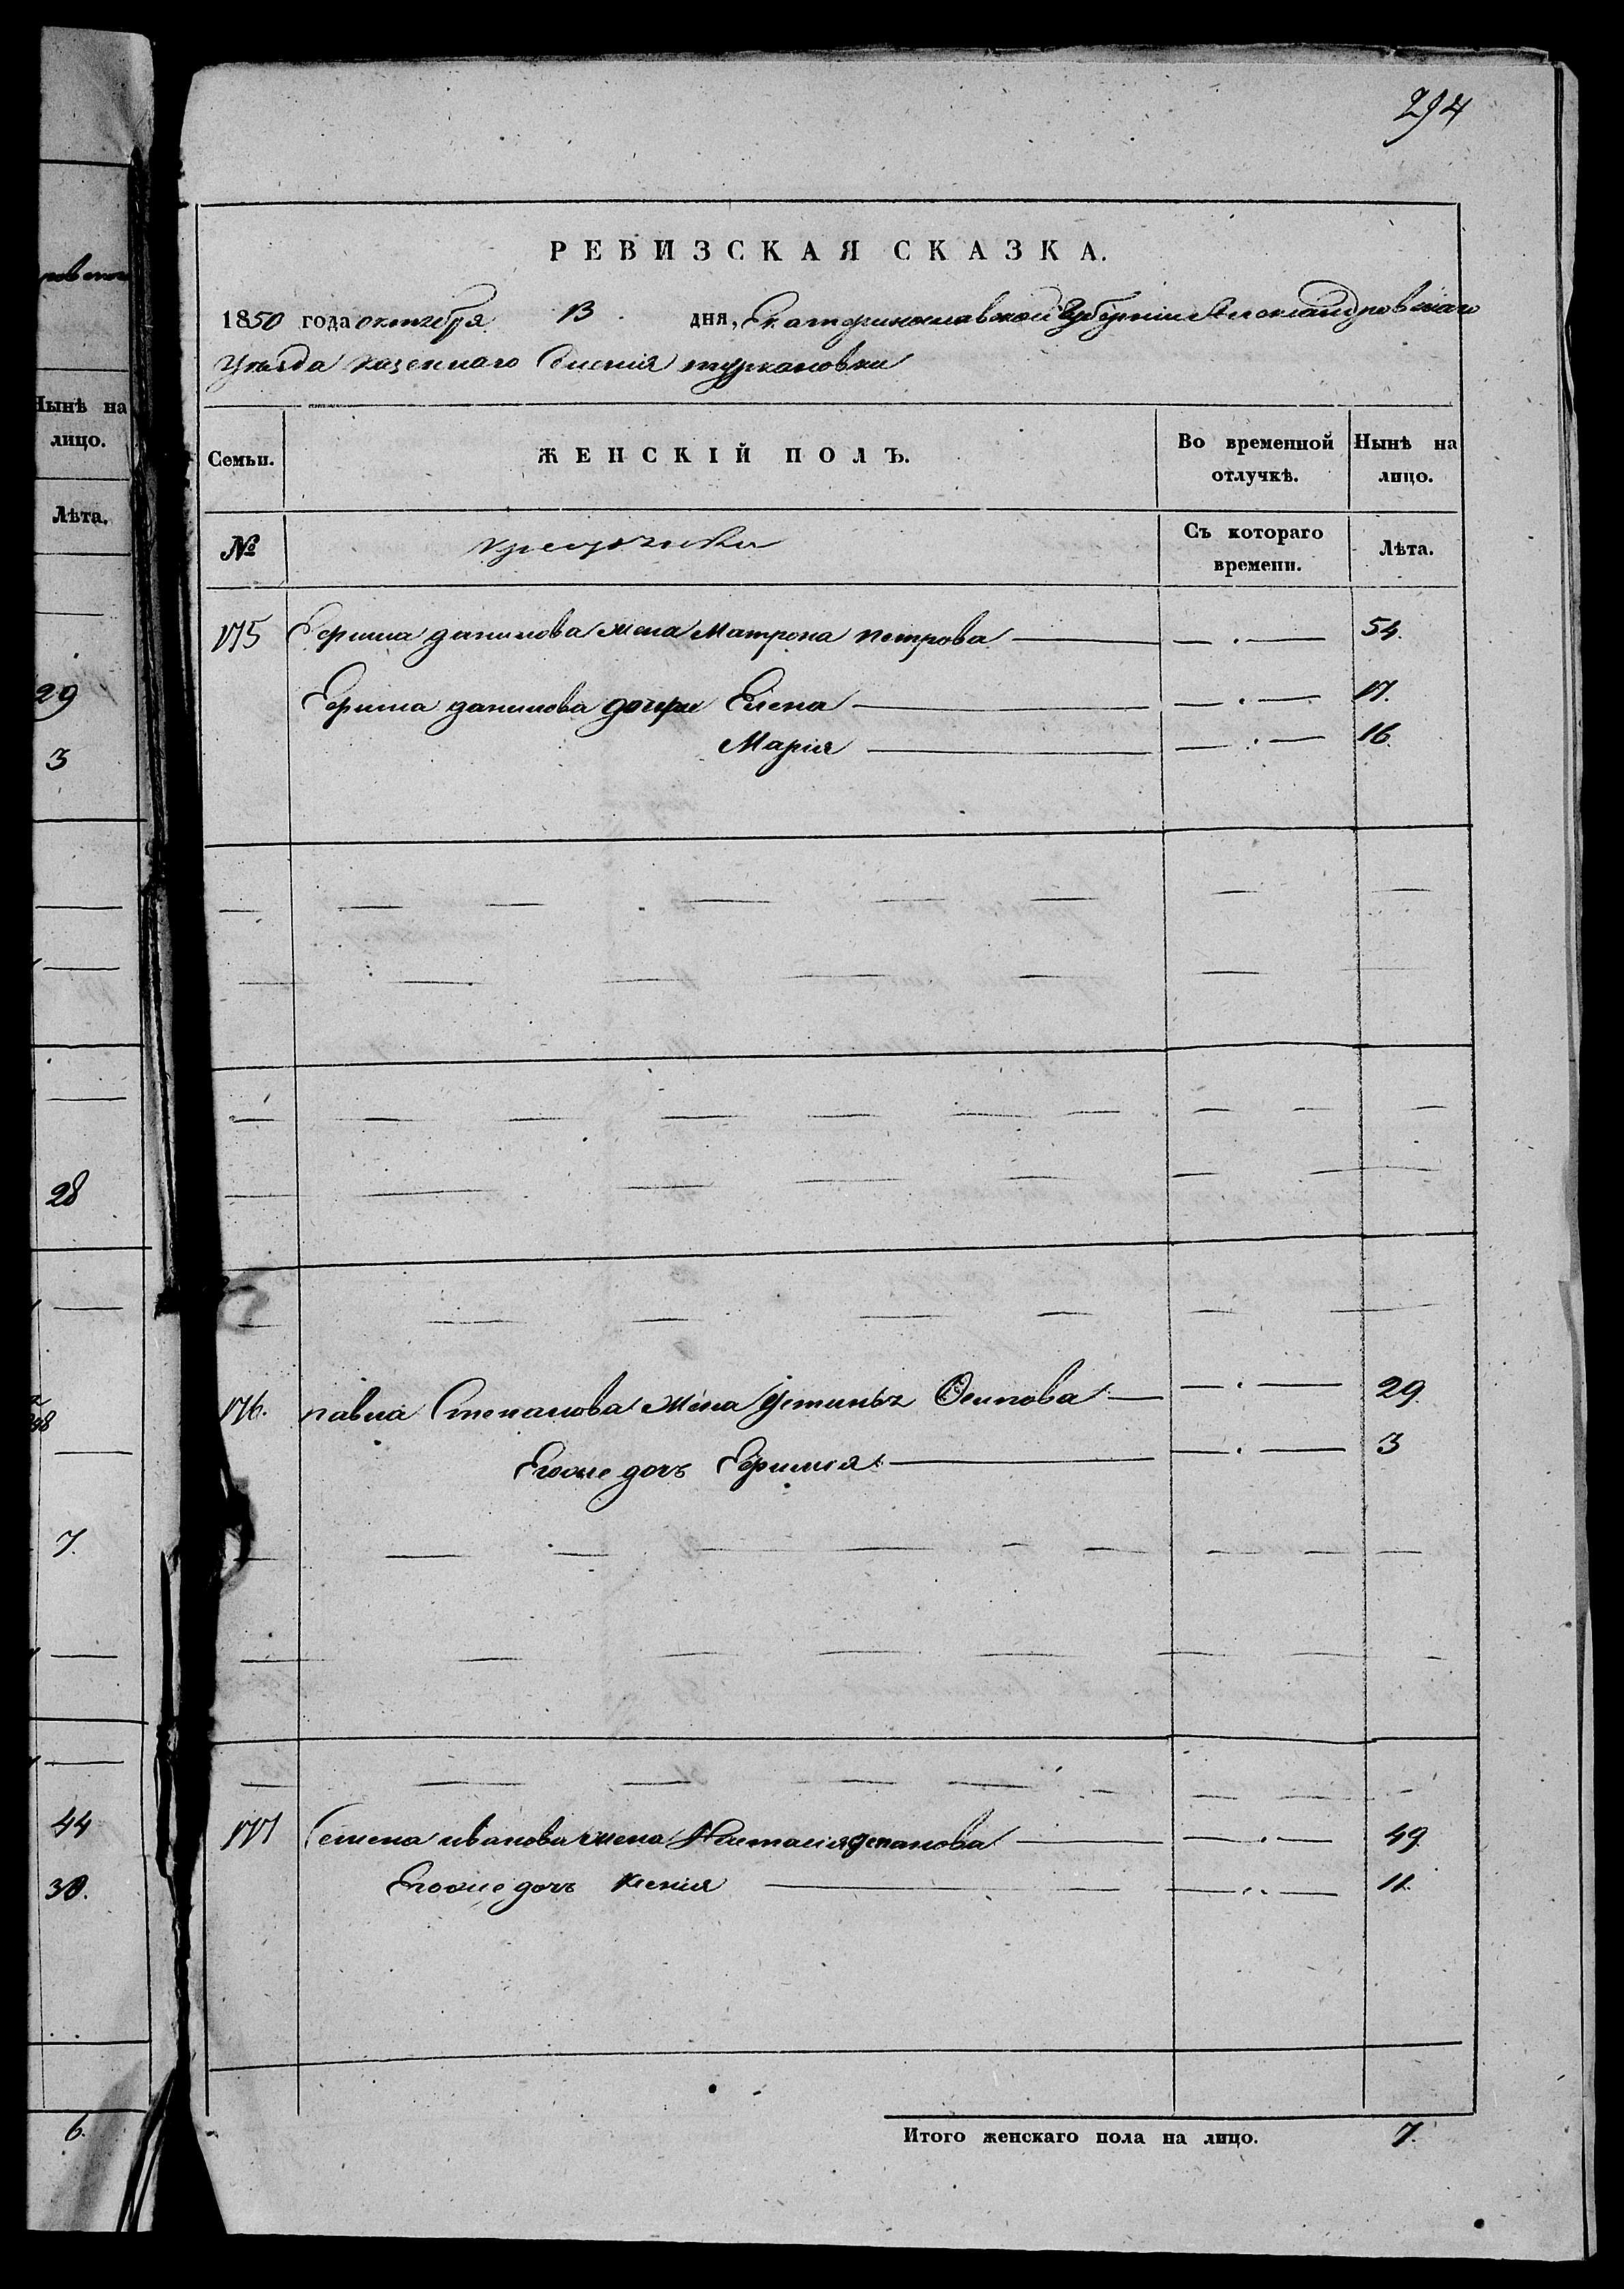 ровского
Нынѣ на
лицо.
Лѣта.
29
3
28
7.
44
30.
6.
294
РЕВИЗСКАЯ СКАЗКА.
1850 года октября 13 дня, Екатеринославской Губернии Александровскаго
уезда казеннаго Селения туркановки
Семьи. ЖЕНСКІЙ ПОЛЪ. Во временной отлучкѣ. Нынѣ на лицо.
№ Съ котораго времени. Лѣта.
175 Ефима данилова жена Матрона петрова 54.
Ефима данилова дочери Елена 17.
Марія 16.
176. павла Степанова жена Устинья Осипова 29.
Егоже дочь Ефимия 3
177 Семена иванова жена Настасия степанова 49.
Егоже дочь Ксения 11.
Итого женскаго пола на лицо. 7.